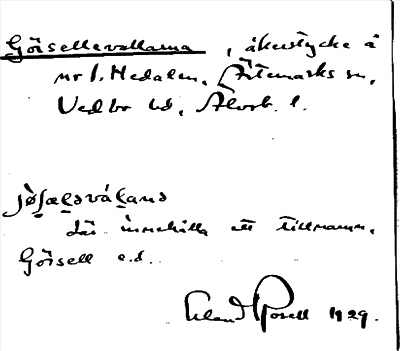 Görsellevallarna, åkerstycke å
nr 1. Medalen, Ärtemarks sn,
Vedbo hd, Älvsb. l.
jø̀ſæḷəválana
Lär innehålla ett tillnamn,
Görsell e.d.
Erland Rosell 1929.